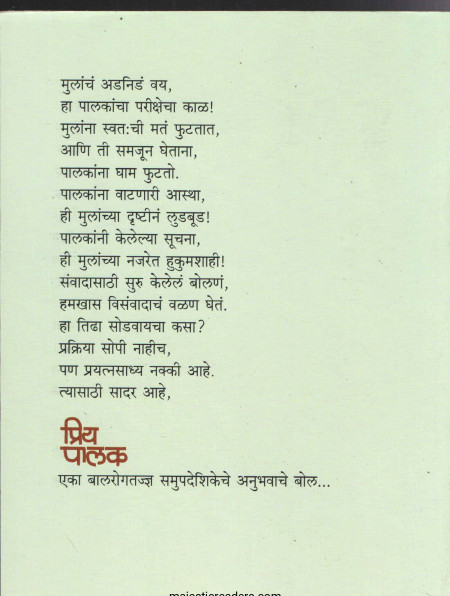 मुलांचं अडनिडं वय,
हा पालकांचा परीक्षेचा काळ!
मुलांना स्वत:ची मतं फुटतात,
आणि ती समजून घेताना,
पालकांना घाम फुटतो.
पालकांना वाटणारी आस्था,
ही मुलांच्या दृष्टीनं लुडबूड!
पालकांनी केलेल्या सूचना,
ही मुलांच्या नजरेत हुकुमशाही!
संवादासाठी सुरु केलेलं बोलणं,
हमखास विसंवादाचं वळण घेतं.
हा तिढा सोडवायचा कसा?
प्रक्रिया सोपी नाहीच,
पण प्रयत्नसाध्य नक्की आहे.
त्यासाठी सादर आहे,
प्रिय
पालक
एका बालरोगतज्ज्ञ समुपदेशिकेचे अनुभवाचे बोल...